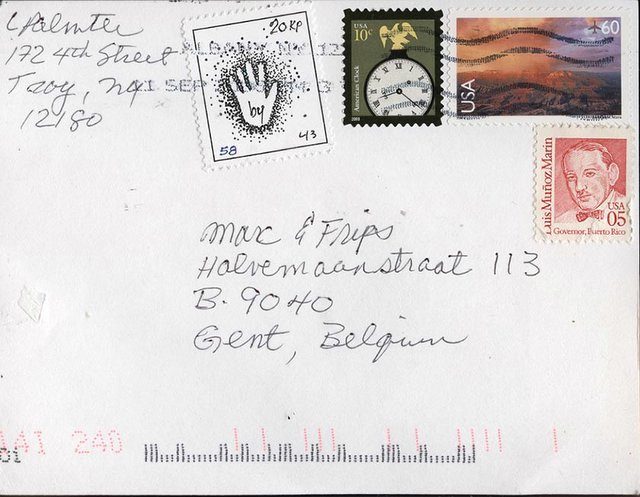 C Palmter
172 4th Street
Troy, NY
12180
ALBANY NY 12
11 SEP
20 KP
by
58
43
USA
10c
American Clock
2003
60
USA
Luis Muñoz Marín
USA
05
Governor, Puerto Rico
Max & Frips
Halvemaanstraat 113
B. 9040
Gent, Belgium
AAI 240
01